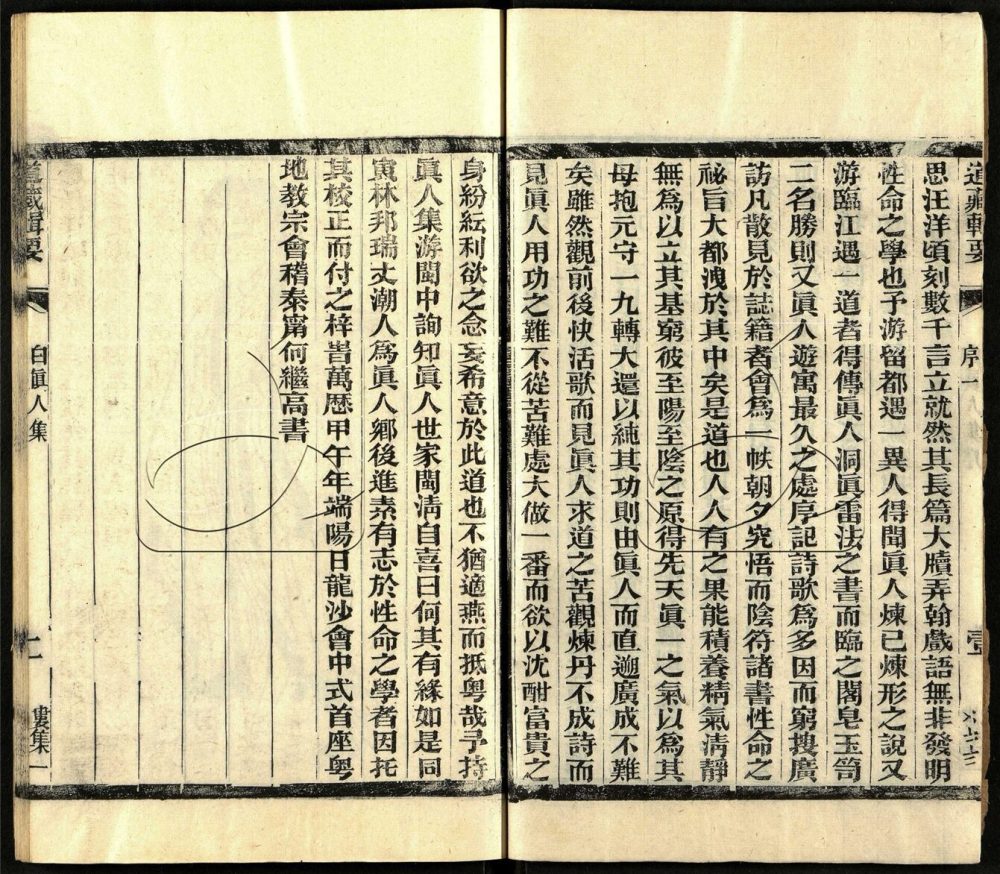 道藏輯要
序一
壹
思汪洋頃刻數千言立就然其長篇大牘弄翰戲語無非發明
性命之學也予游留都遇一異人得聞眞人煉已煉形之說又
游臨江遇一道者得傳眞人洞眞雷法之書而臨之閣皂玉笥
二名勝則又眞人遊寓最久之處序記詩歌爲多因而窮搜廣
訪凡散見於誌籍者會爲一帙朝夕究悟而陰符諸書性命之
祕旨大都洩於其中矣是道也人人有之果能積養精氣淸靜
無爲以立其基窮彼至陽至陰之原得先天眞一之氣以爲其
母抱元守一九轉大還以純其功則由眞人而直遡廣成不難
矣雖然觀前後快活歌而見眞人求道之苦觀煉丹不成詩而
見眞人用功之難不從苦難處大做一番而欲以沈酣富貴之
身紛紜利欲之念妄希意於此道也不猶適燕而抵粤哉予持
眞人集游閩中詢知眞人世家閩淸自喜曰何其有緣如是同
寅林邦瑞丈潮人爲眞人鄉後進素有志於性命之學者因托
其校正而付之梓旹萬歷甲午年端陽日龍沙會中式首座粤
地教宗會稽秦甯何繼高書
道藏輯要
白眞人集
婁集一